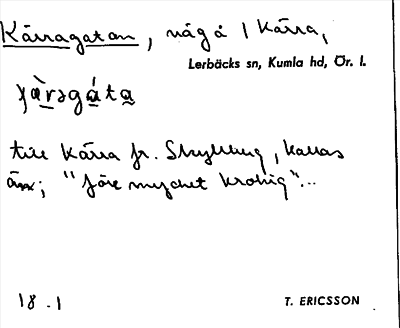 Kärragatan, väg å 1 Kärra,
Lerbäcks sn, Kumla hd, Ör. l.
till Kärra fr. Skyllberg, kallas
även; "före mycket krokig"...
18 . 1
T. ERICSSON